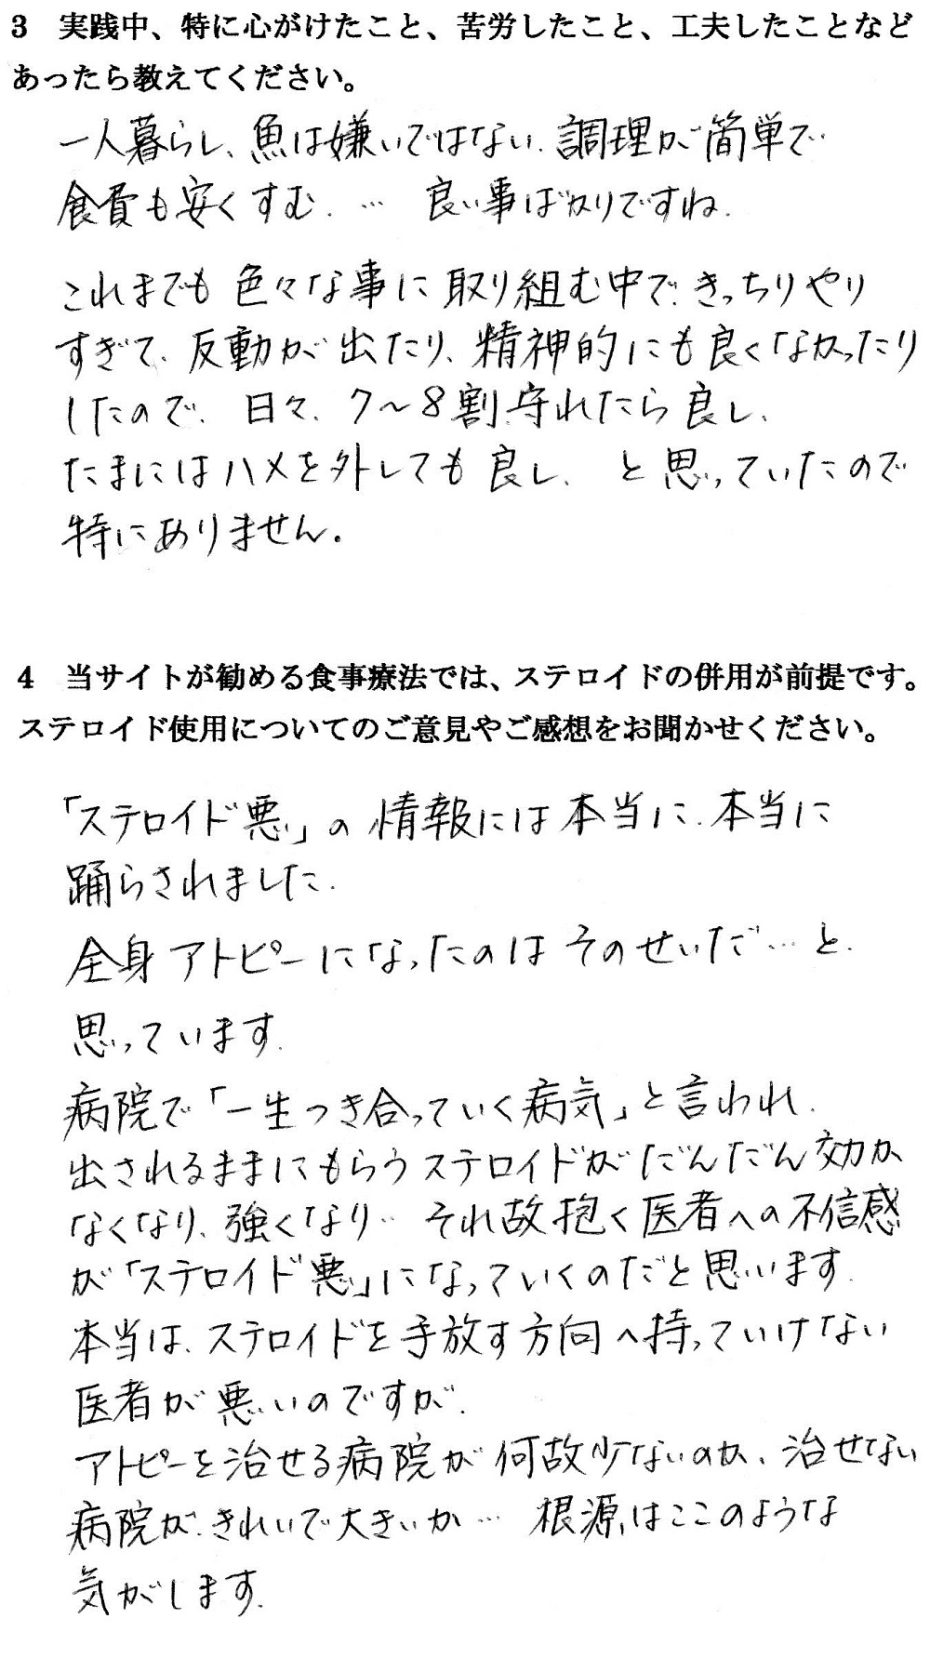 3　実践中、特に心がけたこと、苦労したこと、工夫したことなど
あったら教えてください。
一人暮らし、魚は嫌いではない、調理が簡単で
食費も安くすむ、… 良い事ばかりですね。
これまでも色々な事に取り組む中で、きっちりやり
すぎて、反動が出たり、精神的にも良くなかったり
したので、日々、7～8割守れたら良し、
たまにはハメを外しても良し、と思っていたので
特にありません。
4　当サイトが勧める食事療法では、ステロイドの併用が前提です。
ステロイド使用についてのご意見やご感想をお聞かせください。
「ステロイド悪」の情報には本当に、本当に
踊らされました。
全身アトピーになったのはそのせいだ… と、
思っています。
病院で「一生つき合っていく病気」と言われ、
出されるままにもらうステロイドがだんだん効か
なくなり、強くなり… それ故抱く医者への不信感
が「ステロイド悪」になっていくのだと思います。
本当は、ステロイドを手放す方向へ持っていけない
医者が悪いのですが、
アトピーを治せる病院が何故少ないのか、治せない
病院が、きれいで大きいか… 根源はここのような
気がします。